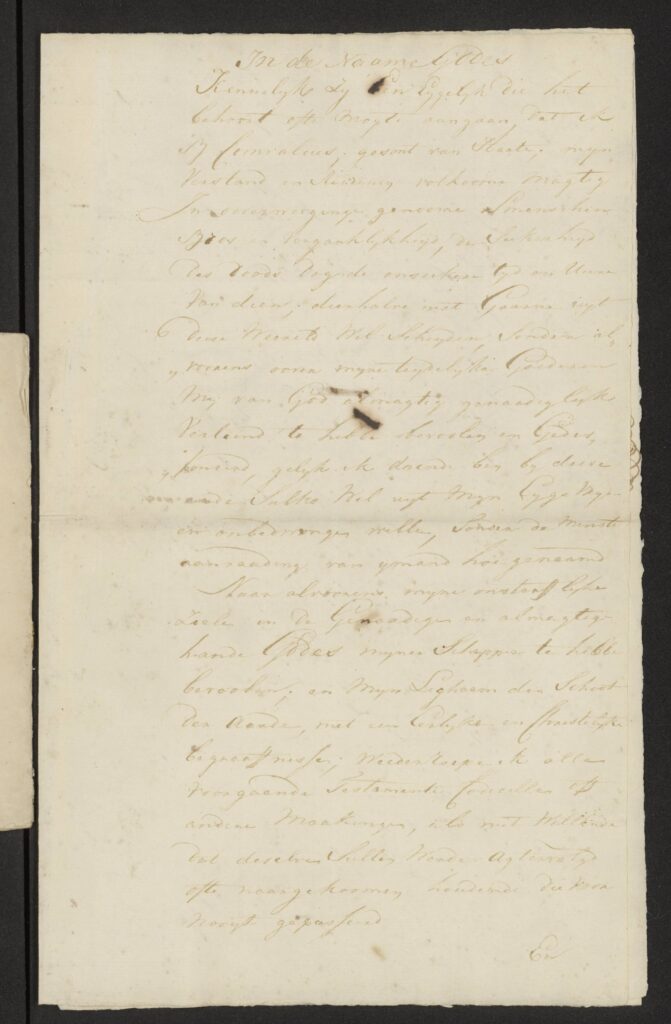 In de Naame Godes
Kennelijk zy Een Eygelyk die het
behoort ofte Mogte aangaan, dat ik
gesont van Staate, myn
Verstand en volkoome Magtig
In overweeginge genoome smenschen
Broos en Vergankelykheyd, de Seekerheyd
des doods dog de onseekere tyd en Uure
van dien, dierhalve niet Gaarne uyt
deese Weereld Wil Scheyden, Sonder al,
voorens over myne teydelyke Goederen
My van God almagtig genaadiglyk
Verleend te hebbe bevoolen en Gedes,
poneerd, gelyk ik doende ben by deese
ende Sulks Wel uyt Myn Eyge Vrye
en onbedwongen wille, Sonder de Minste
aanraading van ymand hoegenaamd
Naar alvoorens myne onsterfflyke
Ziele in de Genaadige en almagtige
hande Godes myner Schepper te hebbe
bevoolen, en Myn Lighaem den Schoot
der Aarde, met een Eerlyke en Christelyke
begraaffnisse, Weederroepe ik alle
voorgaande Testamente Codecillen off
andere Maakingen, als niet Willende
dat deselve Sullen Werde agtervolgd
ofte naargekoomen, houdende die voor
Nooyt gepasseerd
En